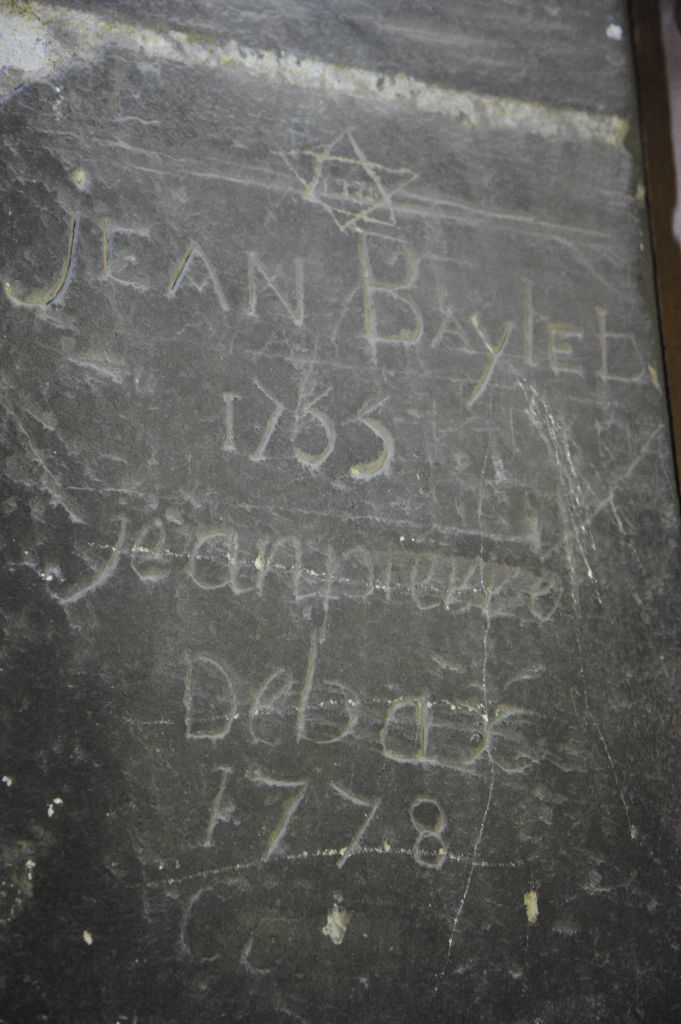 JEAN BAYLET
1755
jeanpierre
Debax
1778